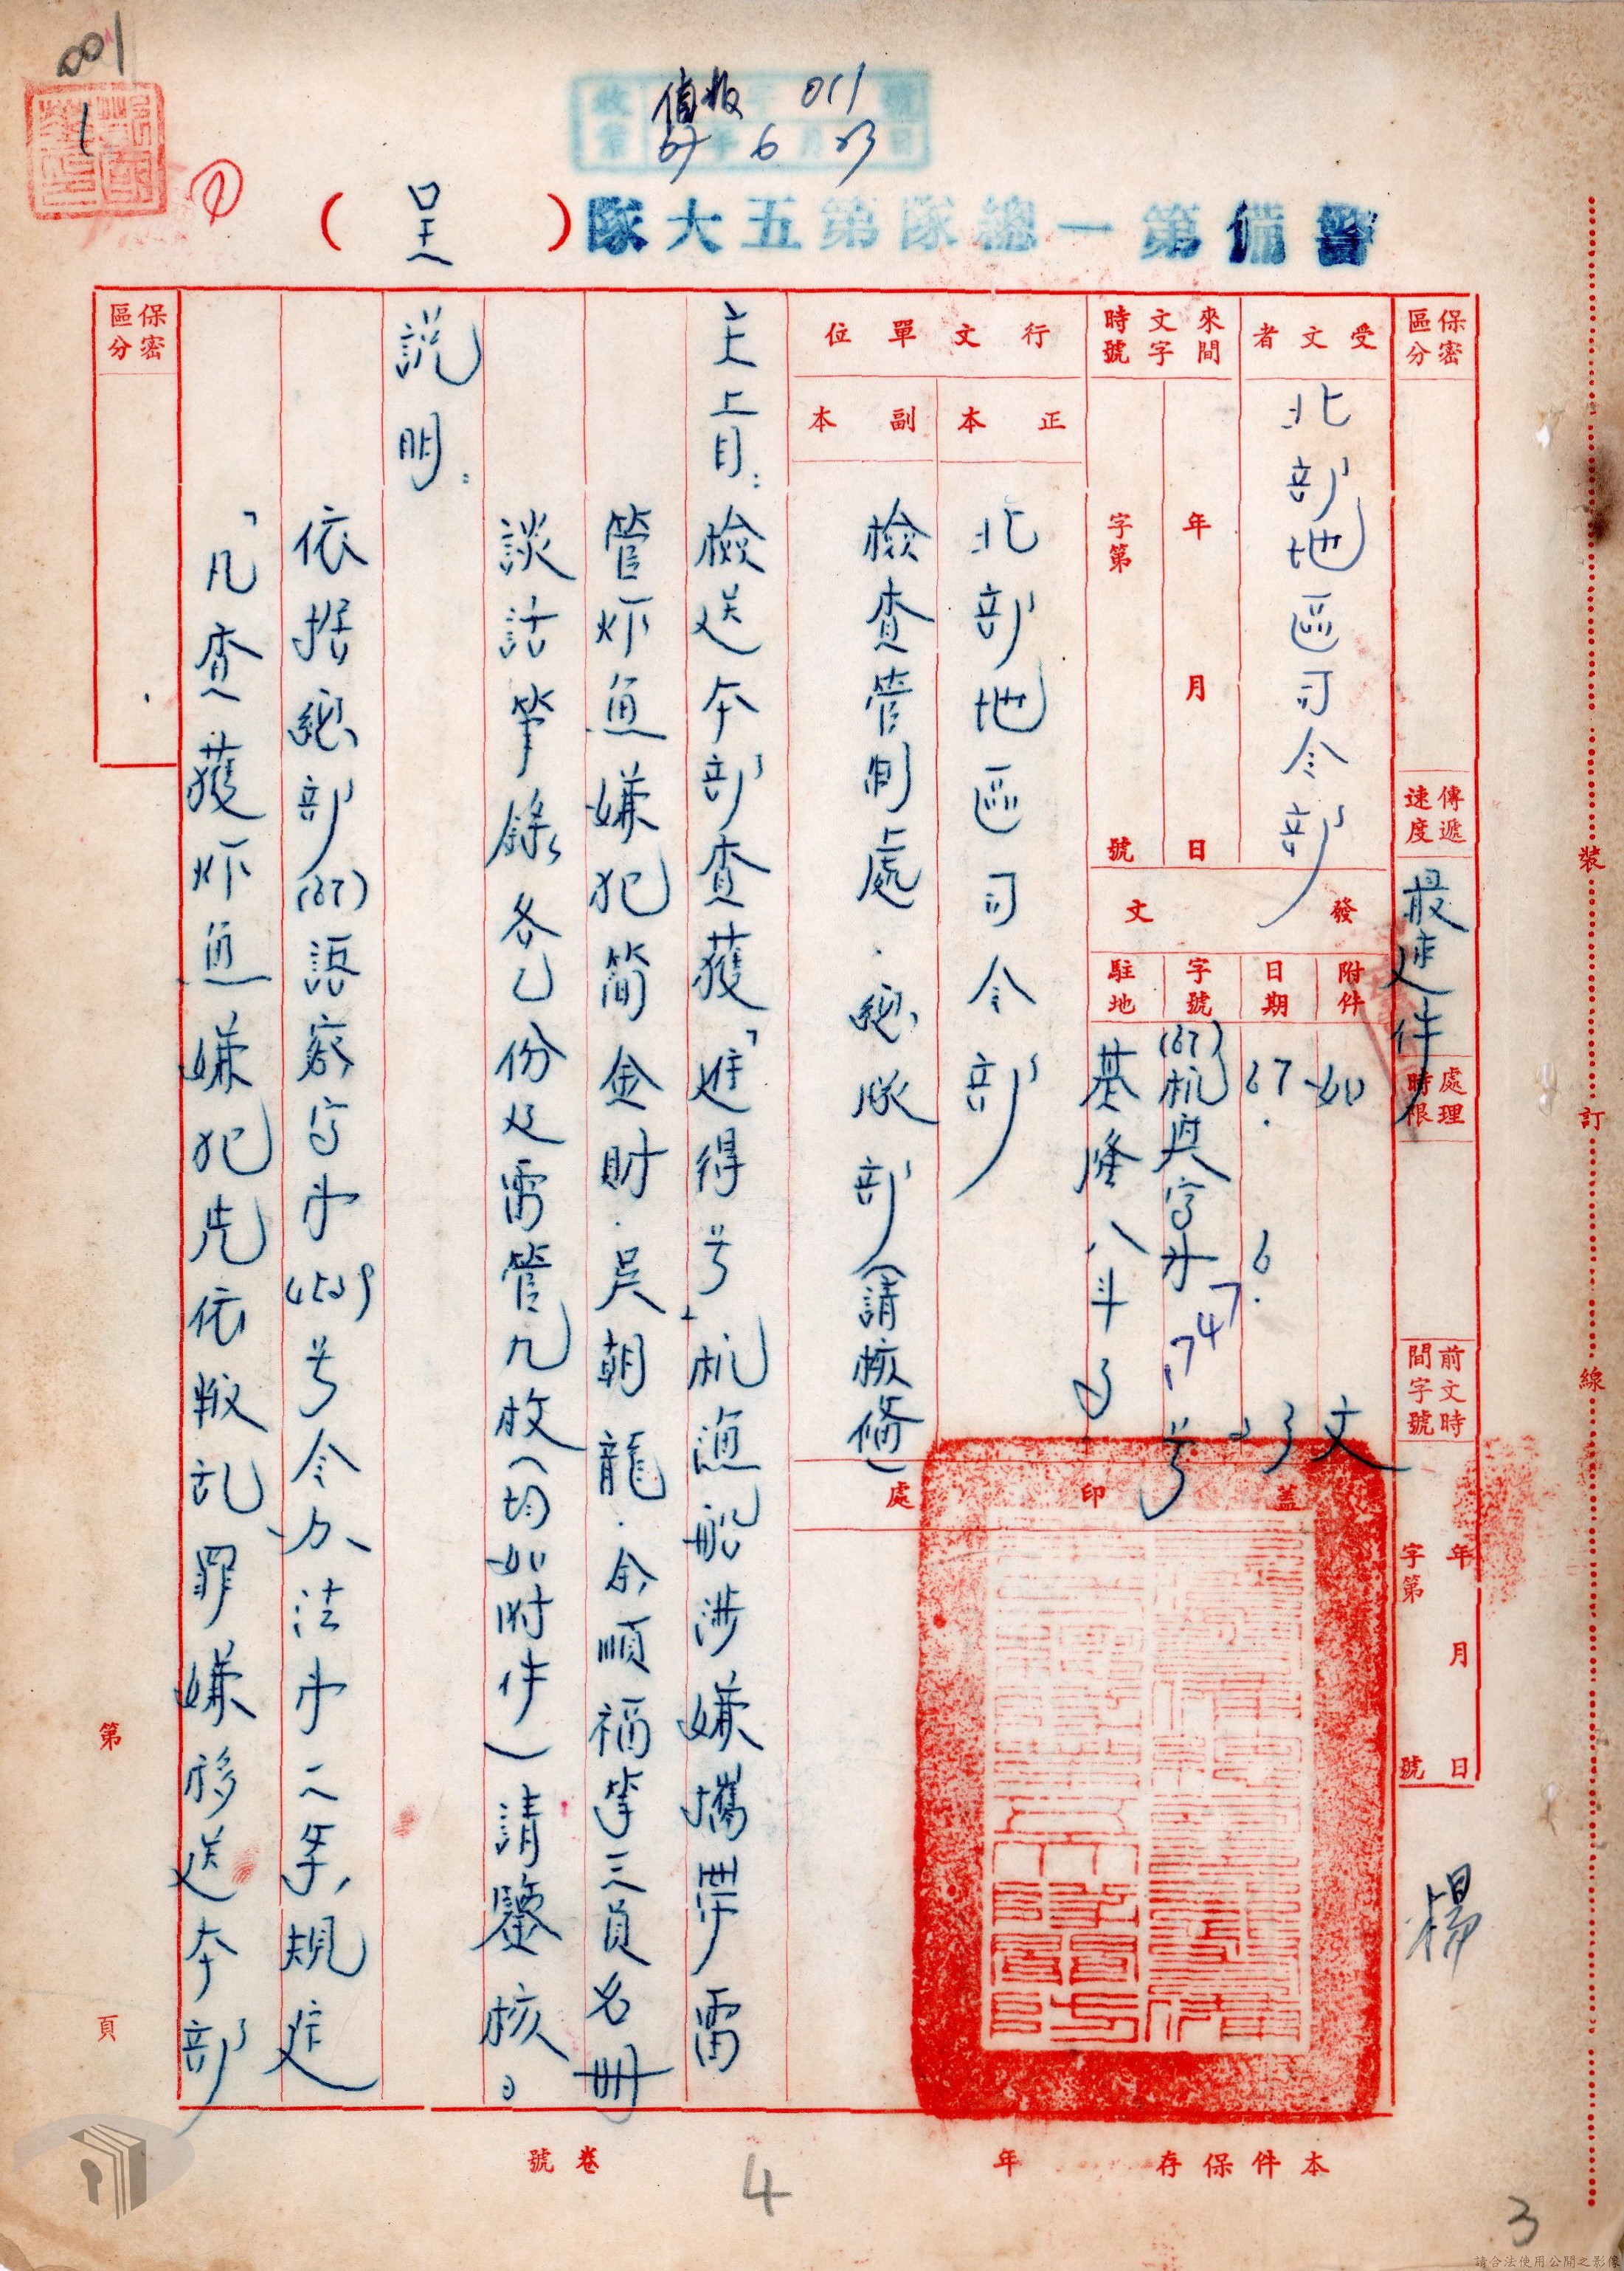 001
偵收 011
67 6 23
警備第一總隊第五大隊（呈）
保密區分
傳遞速度
最速件
處理時限
前文時間字號
年 月 日
字第 號
楊
受文者
北部地區司令部
來文時間字號
年 月 日
字第 號
發文
附件
如文
日期
67. 6. 23
字號
(67)机典字第1747号
駐地
基隆八斗子
行文單位
正本
北部地區司令部
副本
檢查管制處.總隊部(請核備)
蓋印處
主旨：檢送本部查獲「進得号」机漁船涉嫌攜帶雷
管炸魚嫌犯簡金財.吳朝龍.余順福等三員名冊
談話筆錄各乙份及雷管九枚(均如附件)請鑒核。
說明：
依据總部(67)語察字第4539号令办法第二条，規定
「凡查獲炸魚嫌犯先依叛乱罪嫌移送本部
保密區分
第 頁
裝 訂 線
本件保存 年
卷號
4
3
請合法使用公開之影像